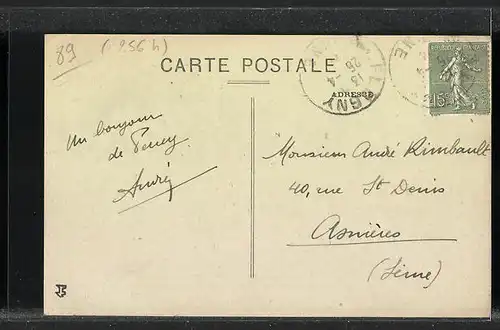 89
(256 h)
CARTE POSTALE
ADRESSE
LIGNY
13 -4
26
15
Un bonjour
de Percey
André
Monsieur André Rimbault
40, rue St Denis
Asnières
(Seine)